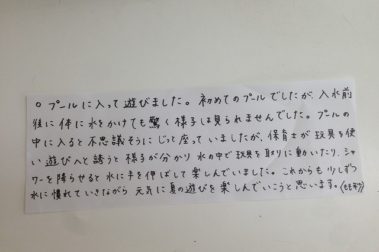 ○ プールに入って遊びました。初めてのプールでしたが、入水前
後に体に水をかけても驚く様子は見られませんでした。プールの
中に入ると不思議そうにじっと座っていましたが、保育士が玩具を使
い遊びへと誘うと様子が分かり水の中で玩具を取りに動いたり、シャ
ワーを降らせると水に手を伸ばして楽しんでいました。これからも少しずつ
水に慣れていきながら元気に夏の遊びを楽しんでいこうと思います。